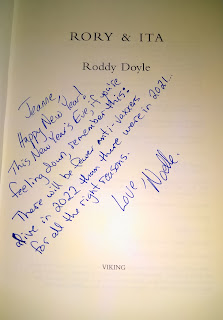 RORY & ITA
Roddy Doyle
Jeanne,
Happy New Year!
This New Year's Eve, if you're
feeling down, remember this:
There will be fewer anti-vaxxers
alive in 2022 than there were in 2021...
for all the right reasons.
Love,
VIKING